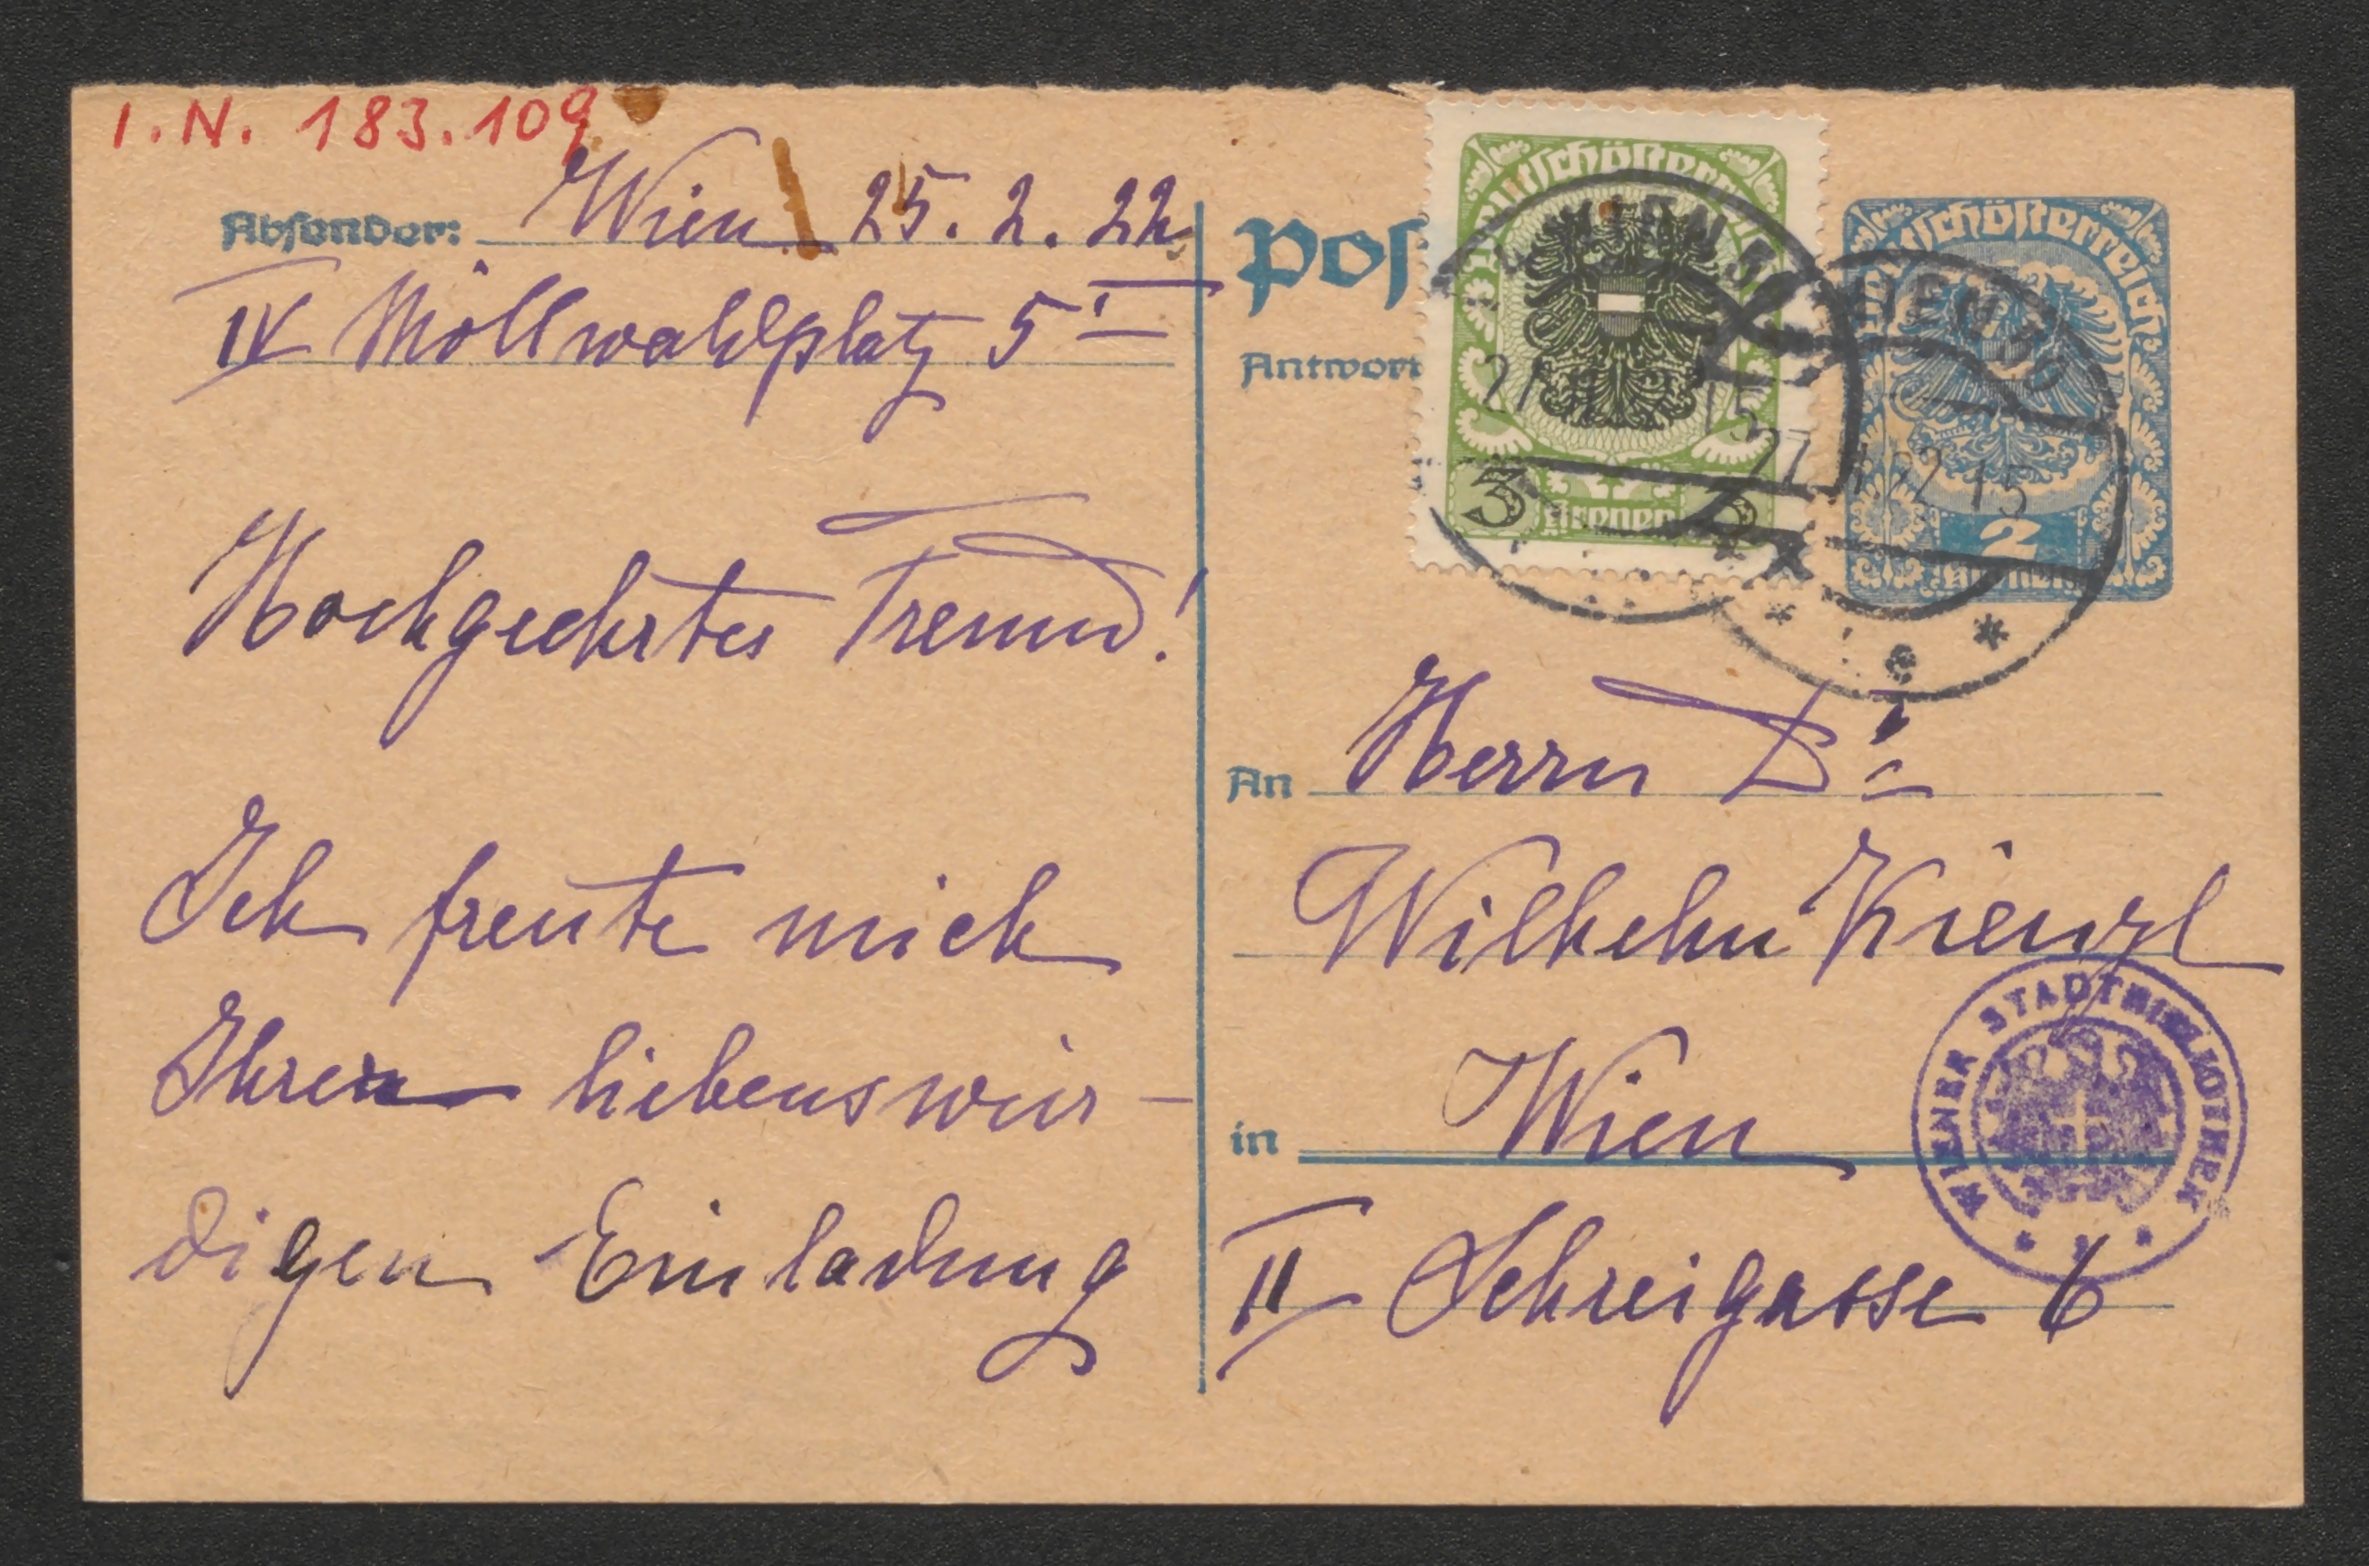 I.N. 183.109
Absender: Wien 25. 2. 22
IV Möllwaldplatz 5 I
Hochgeehrter Freund!
Ich freute mich
Ihrer liebenswür-
digen Einladung
Pos
Antwort
Deutschösterreich
3 Kronen 3
Deutschösterreich
2
Kronen
WIEN 50
WIEN 50
27. II 22 15
An Herrn Dr
Wilhelm Kienzl
in Wien
II Schreigasse 6
WIENER STADTBIBLIOTHEK